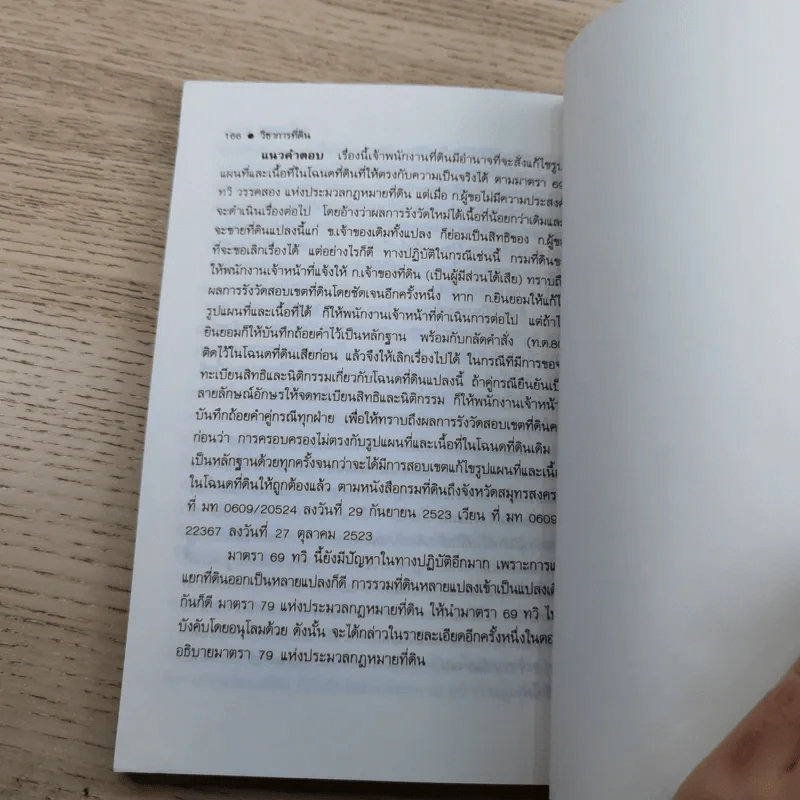 166 ● วิชาการที่ดิน
แนวคำตอบ เรื่องนี้เจ้าพนักงานที่ดินมีอำนาจที่จะสั่งแก้ไขรูป
แผนที่และเนื้อที่ในโฉนดที่ดินที่ให้ตรงกับความเป็นจริงได้ ตามมาตรา 69
ทวิ วรรคสอง แห่งประมวลกฎหมายที่ดิน แต่เมื่อ ก.ผู้ขอไม่มีความประสงค์
จะดำเนินเรื่องต่อไป โดยอ้างว่าผลการรังวัดใหม่ได้เนื้อที่น้อยกว่าเดิมและ
จะขายที่ดินแปลงนี้แก่ ข.เจ้าของเดิมทั้งแปลง ก็ย่อมเป็นสิทธิของ ก.ผู้ขอ
ที่จะขอเลิกเรื่องได้ แต่อย่างไรก็ดี ทางปฏิบัติในกรณีเช่นนี้ กรมที่ดิน
ให้พนักงานเจ้าหน้าที่แจ้งให้ ก.เจ้าของที่ดิน (เป็นผู้มีส่วนได้เสีย) ทราบถึ
ผลการรังวัดสอบเขตที่ดินโดยชัดเจนอีกครั้งหนึ่ง หาก ก.ยินยอมให้แก้ไ
รูปแผนที่และเนื้อที่ได้ ก็ให้พนักงานเจ้าหน้าที่ดำเนินการต่อไป แต่ถ้าไ
ยินยอมก็ให้บันทึกถ้อยคำไว้เป็นหลักฐาน พร้อมกับกลัดคำสั่ง (ท.ด.80
ติดไว้ในโฉนดที่ดินเสียก่อน แล้วจึงให้เลิกเรื่องไปได้ ในกรณีที่มีการขอจ
ทะเบียนสิทธิและนิติกรรมเกี่ยวกับโฉนดที่ดินแปลงนี้ ถ้าคู่กรณียืนยันเป็
ลายลักษณ์อักษรให้จดทะเบียนสิทธิและนิติกรรม ก็ให้พนักงานเจ้าหน้า
บันทึกถ้อยคำคู่กรณีทุกฝ่าย เพื่อให้ทราบถึงผลการรังวัดสอบเขตที่ดินค
ก่อนว่า การครอบครองไม่ตรงกับรูปแผนที่และเนื้อที่ในโฉนดที่ดินเดิม
เป็นหลักฐานด้วยทุกครั้งจนกว่าจะได้มีการสอบเขตแก้ไขรูปแผนที่และเนื้
ในโฉนดที่ดินให้ถูกต้องแล้ว ตามหนังสือกรมที่ดินถึงจังหวัดสมุทรสงคร
ที่ มท 0609/20524 ลงวันที่ 29 กันยายน 2523 เวียน ที่ มท 0609
22367 ลงวันที่ 27 ตุลาคม 2523
มาตรา 69 ทวิ นี้ยังมีปัญหาในทางปฏิบัติอีกมาก เพราะการแ
แยกที่ดินออกเป็นหลายแปลงก็ดี การรวมที่ดินหลายแปลงเข้าเป็นแปลงเดี
กันก็ดี มาตรา 79 แห่งประมวลกฎหมายที่ดิน ให้นำมาตรา 69 ทวิ ไ
บังคับโดยอนุโลมด้วย ดังนั้น จะได้กล่าวในรายละเอียดอีกครั้งหนึ่งในตอ
อธิบายมาตรา 79 แห่งประมวลกฎหมายที่ดิน